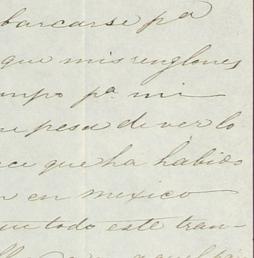 barcarse pª
que mis renglones
mpo pª mi
pesa de ver lo
que ha habido
en mexico
todo este tran-